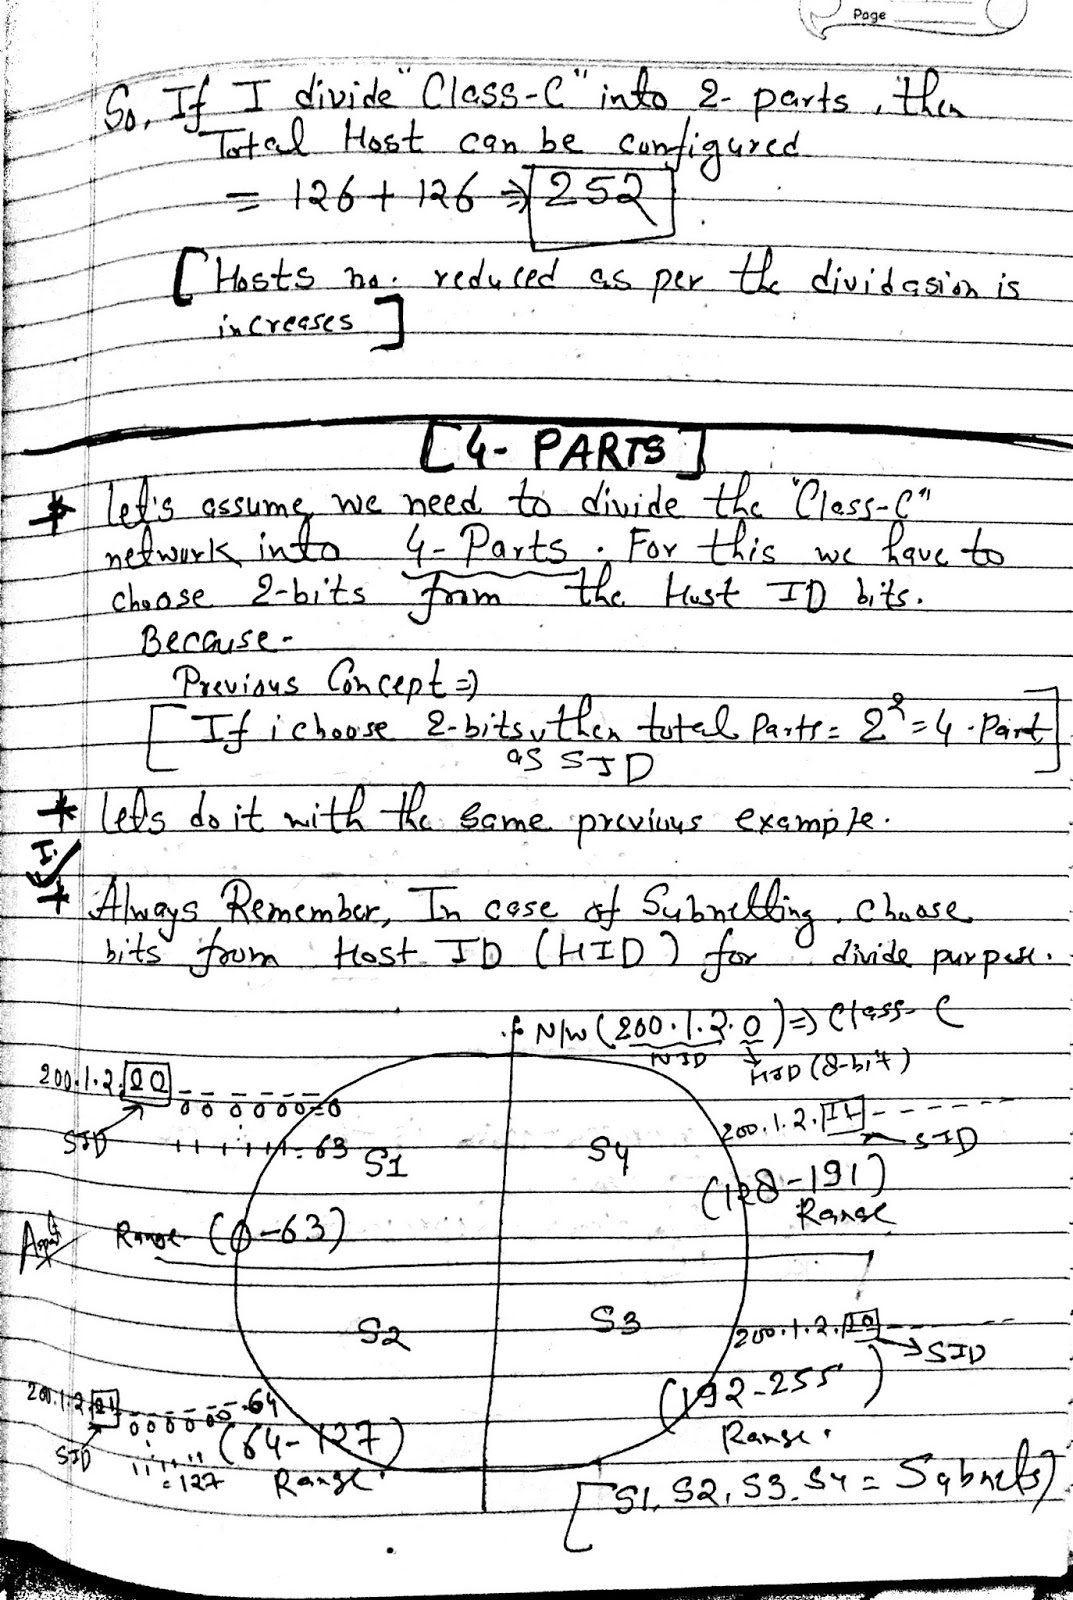 Page
So, If I divide "Class-C" into 2- parts, then
Total Host can be configured
= 126 + 126 => 252
[Hosts no. reduced as per the dividasion is
increases]
[4- PARTS]
* let's assume, we need to divide the "Class-C"
network into 4- Parts. For this we have to
choose 2-bits from the Host ID bits.
Because-
Previous Concept =>
[If i choose 2-bits, then total Parts = 2² = 4 - Part]
as SID
* let's do it with the same previous example.
* Always Remember, In case of Subnetting, choose
bits from Host ID (HID) for divide purpose.
N/W (200.1.2.0) => Class-C
NID HID (8-bit)
200.1.2.00 _ _ _ _ _ _
0 0 0 0 0 0 = 0
SID
1 1 1 1 1 1 = 63
S1
Range (0-63)
S4
200.1.2.11 - - - - - -
SID
(128-191)
Range
S2
200.1.2.01 _ _ _ _ _ _
0 0 0 0 0 0 = 64
SID
1 1 1 1 1 1
= 127
(64-127)
Range
S3
200.1.2.10 - - - - - -
SID
(192-255)
Range.
[S1, S2, S3, S4 = Subnets]